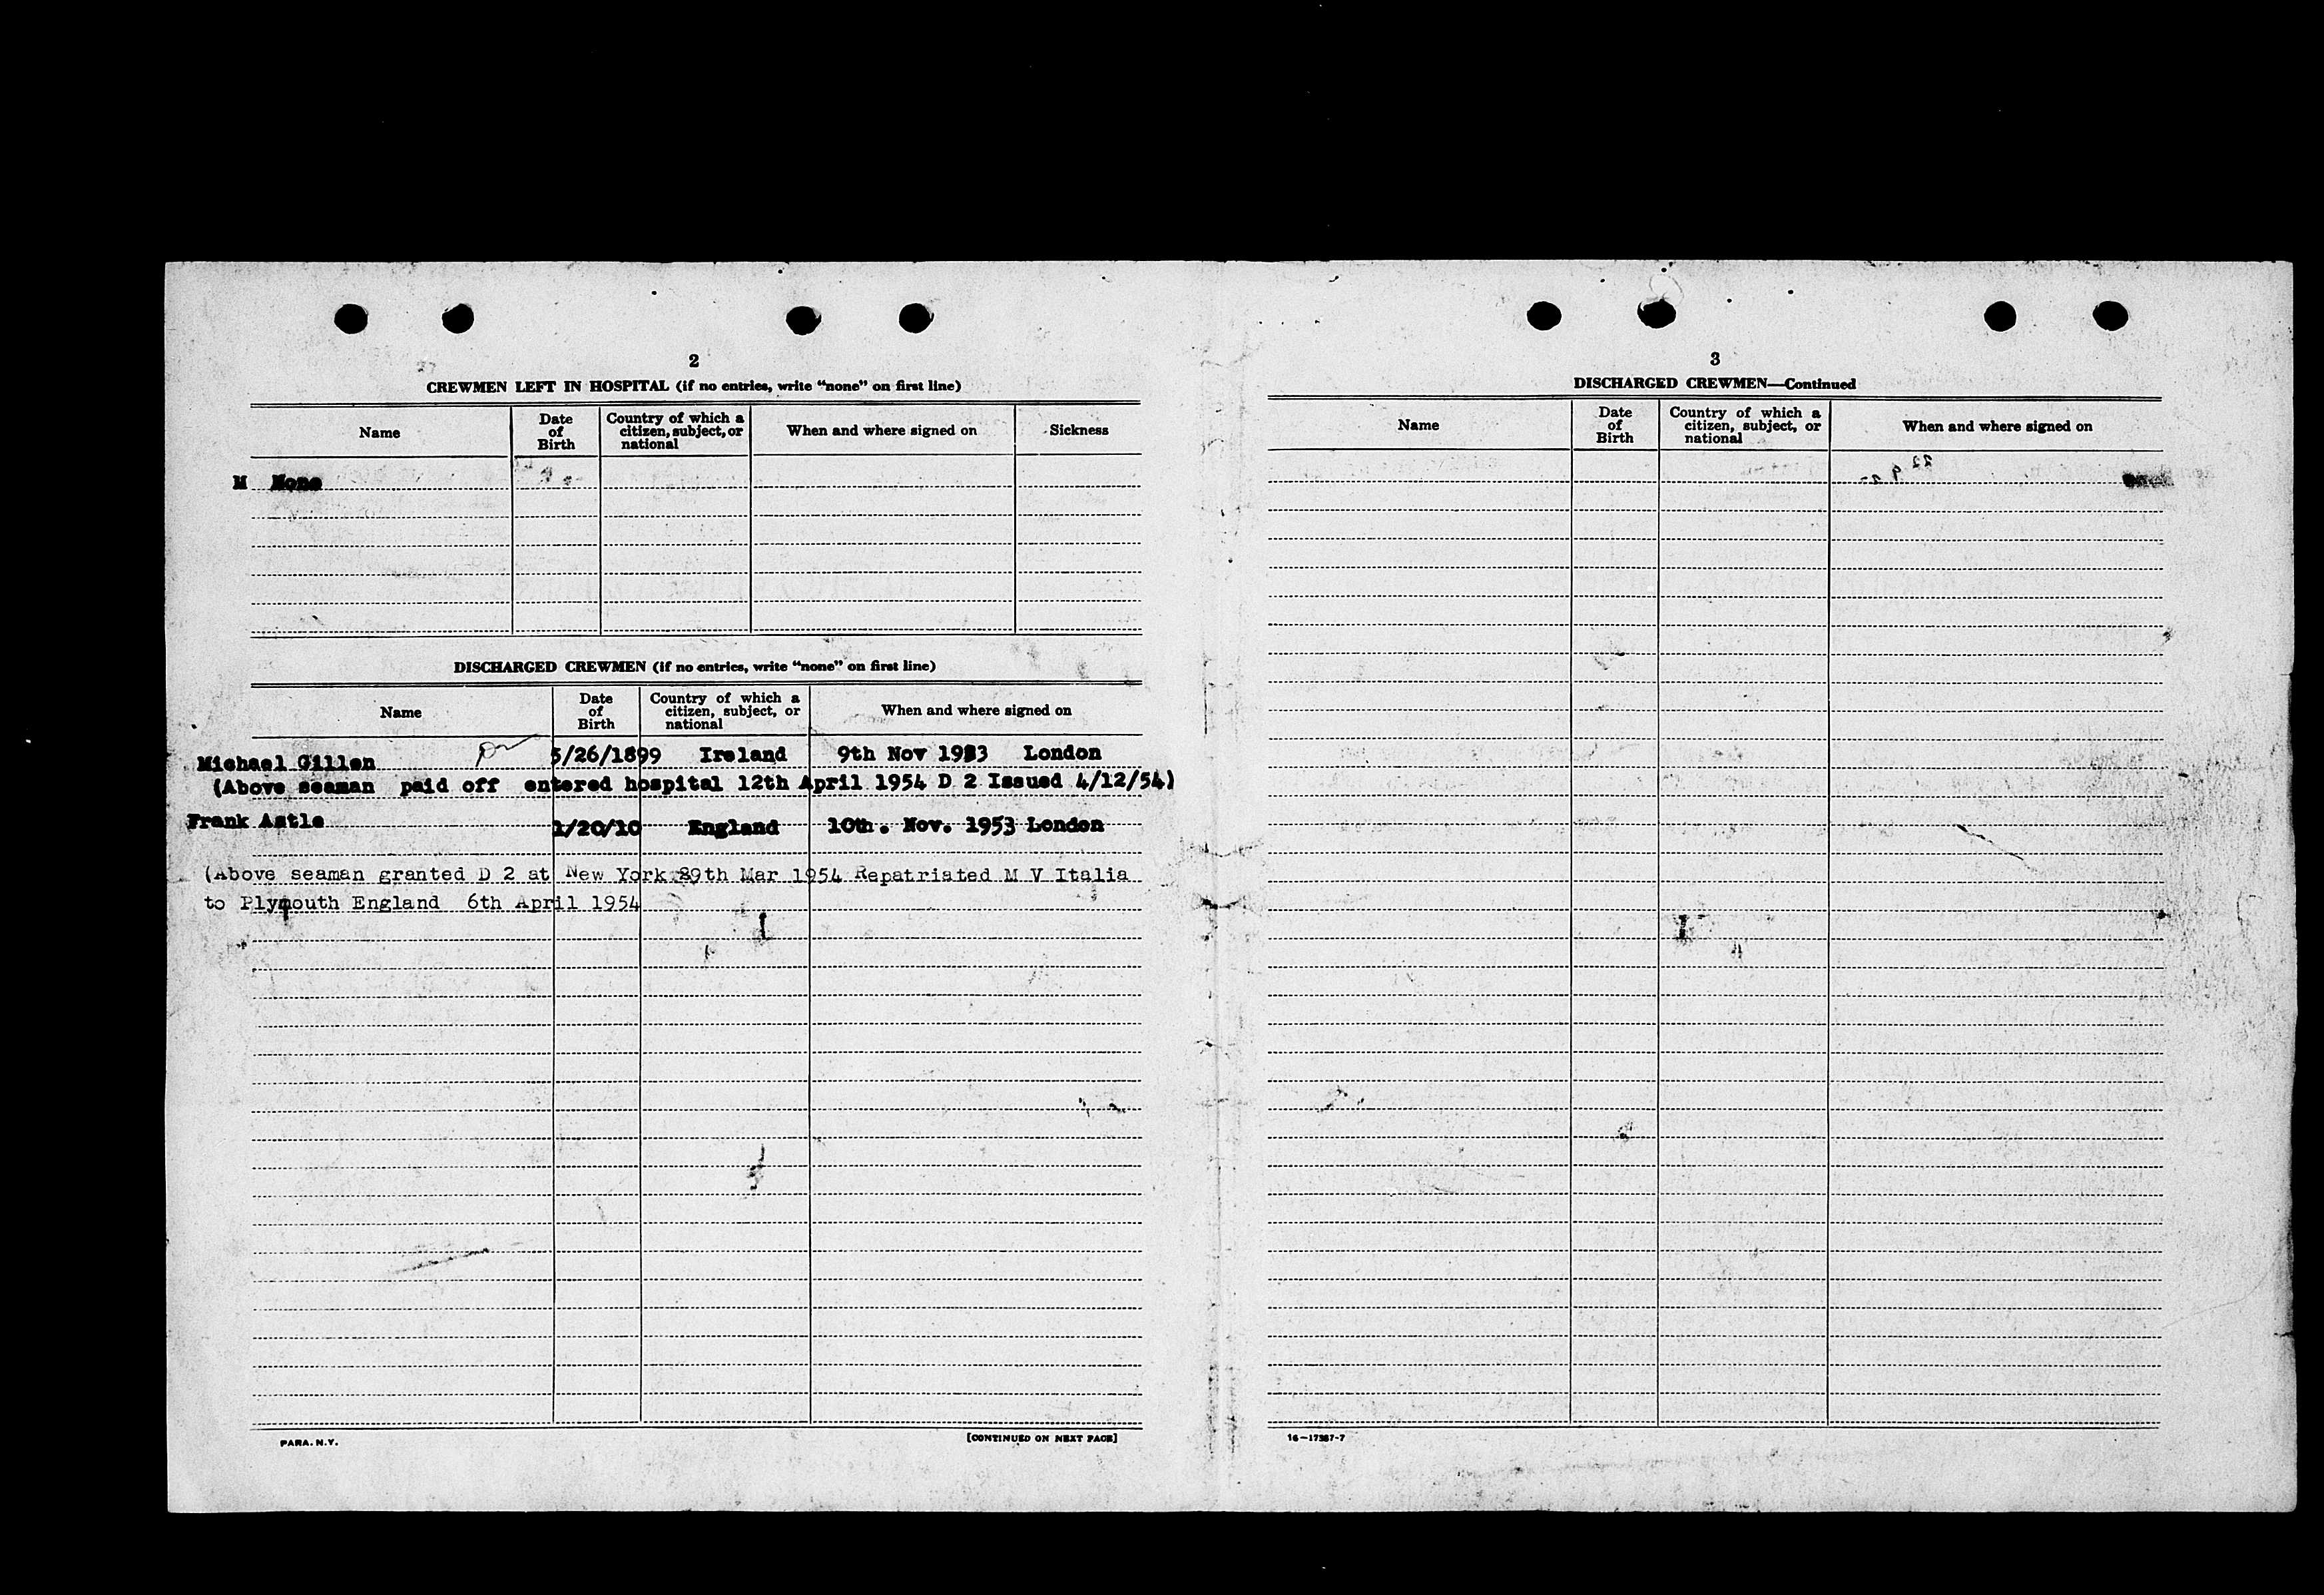 2
CREWMEN LEFT IN HOSPITAL (if no entries, write "none" on first line)
Name
Date of Birth
Country of which a citizen, subject, or national
When and where signed on
Sickness
M None
DISCHARGED CREWMEN (if no entries, write "none" on first line)
Name
Date of Birth
Country of which a citizen, subject, or national
When and where signed on
Michael Gillen 5/26/1899 Ireland 9th Nov 1953 London
(Above seaman paid off entered hospital 12th April 1954 D 2 Issued 4/12/54)
Frank Astle 1/20/10 England 10th. Nov. 1953 London
(Above seaman granted D 2 at New York 29th Mar 1954 Repatriated M V Italia
to Plymouth England 6th April 1954
PARA. N.Y.
[CONTINUED ON NEXT PAGE]
3
DISCHARGED CREWMEN—Continued
Name
Date of Birth
Country of which a citizen, subject, or national
When and where signed on
16—17387-7